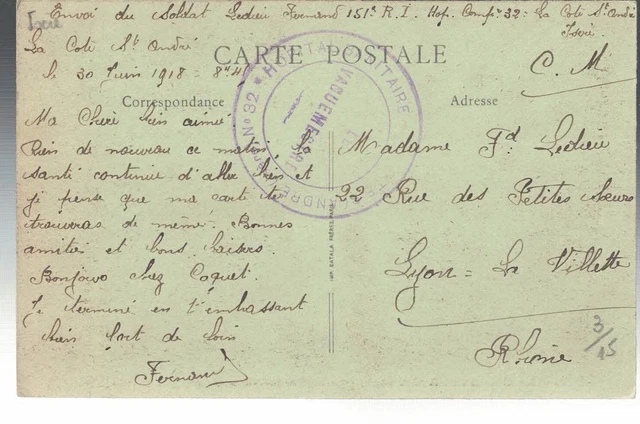 Envoi du Soldat Ledieu Fernand 151e R.I. Hop. Compre 32 = La Coté St André
Isère
La Coté St André
le 30 Juin 1918 = 8h
CARTE POSTALE
C. M
Correspondance
Adresse
Ma Chérie bien aimée
Rien de nouveau ce matin. La
santé continue d'aller bien et
je pense que ma carte te
trouveras de même. Bonnes
amitiés et bons baisers.
Bonjour chez Coquet.
Je terminé en t'embrassant
bien fort de loin
Fernand
Madame Fd Ledieu
22 Rue des Petites Sœurs
Lyon = La Villette
Rhône
3/15
HOPITAL MILITAIRE
No 32
VAGUEMESTRE
ANDRÉ
IMP. BATALA FRÈRES, PARIS
Isère